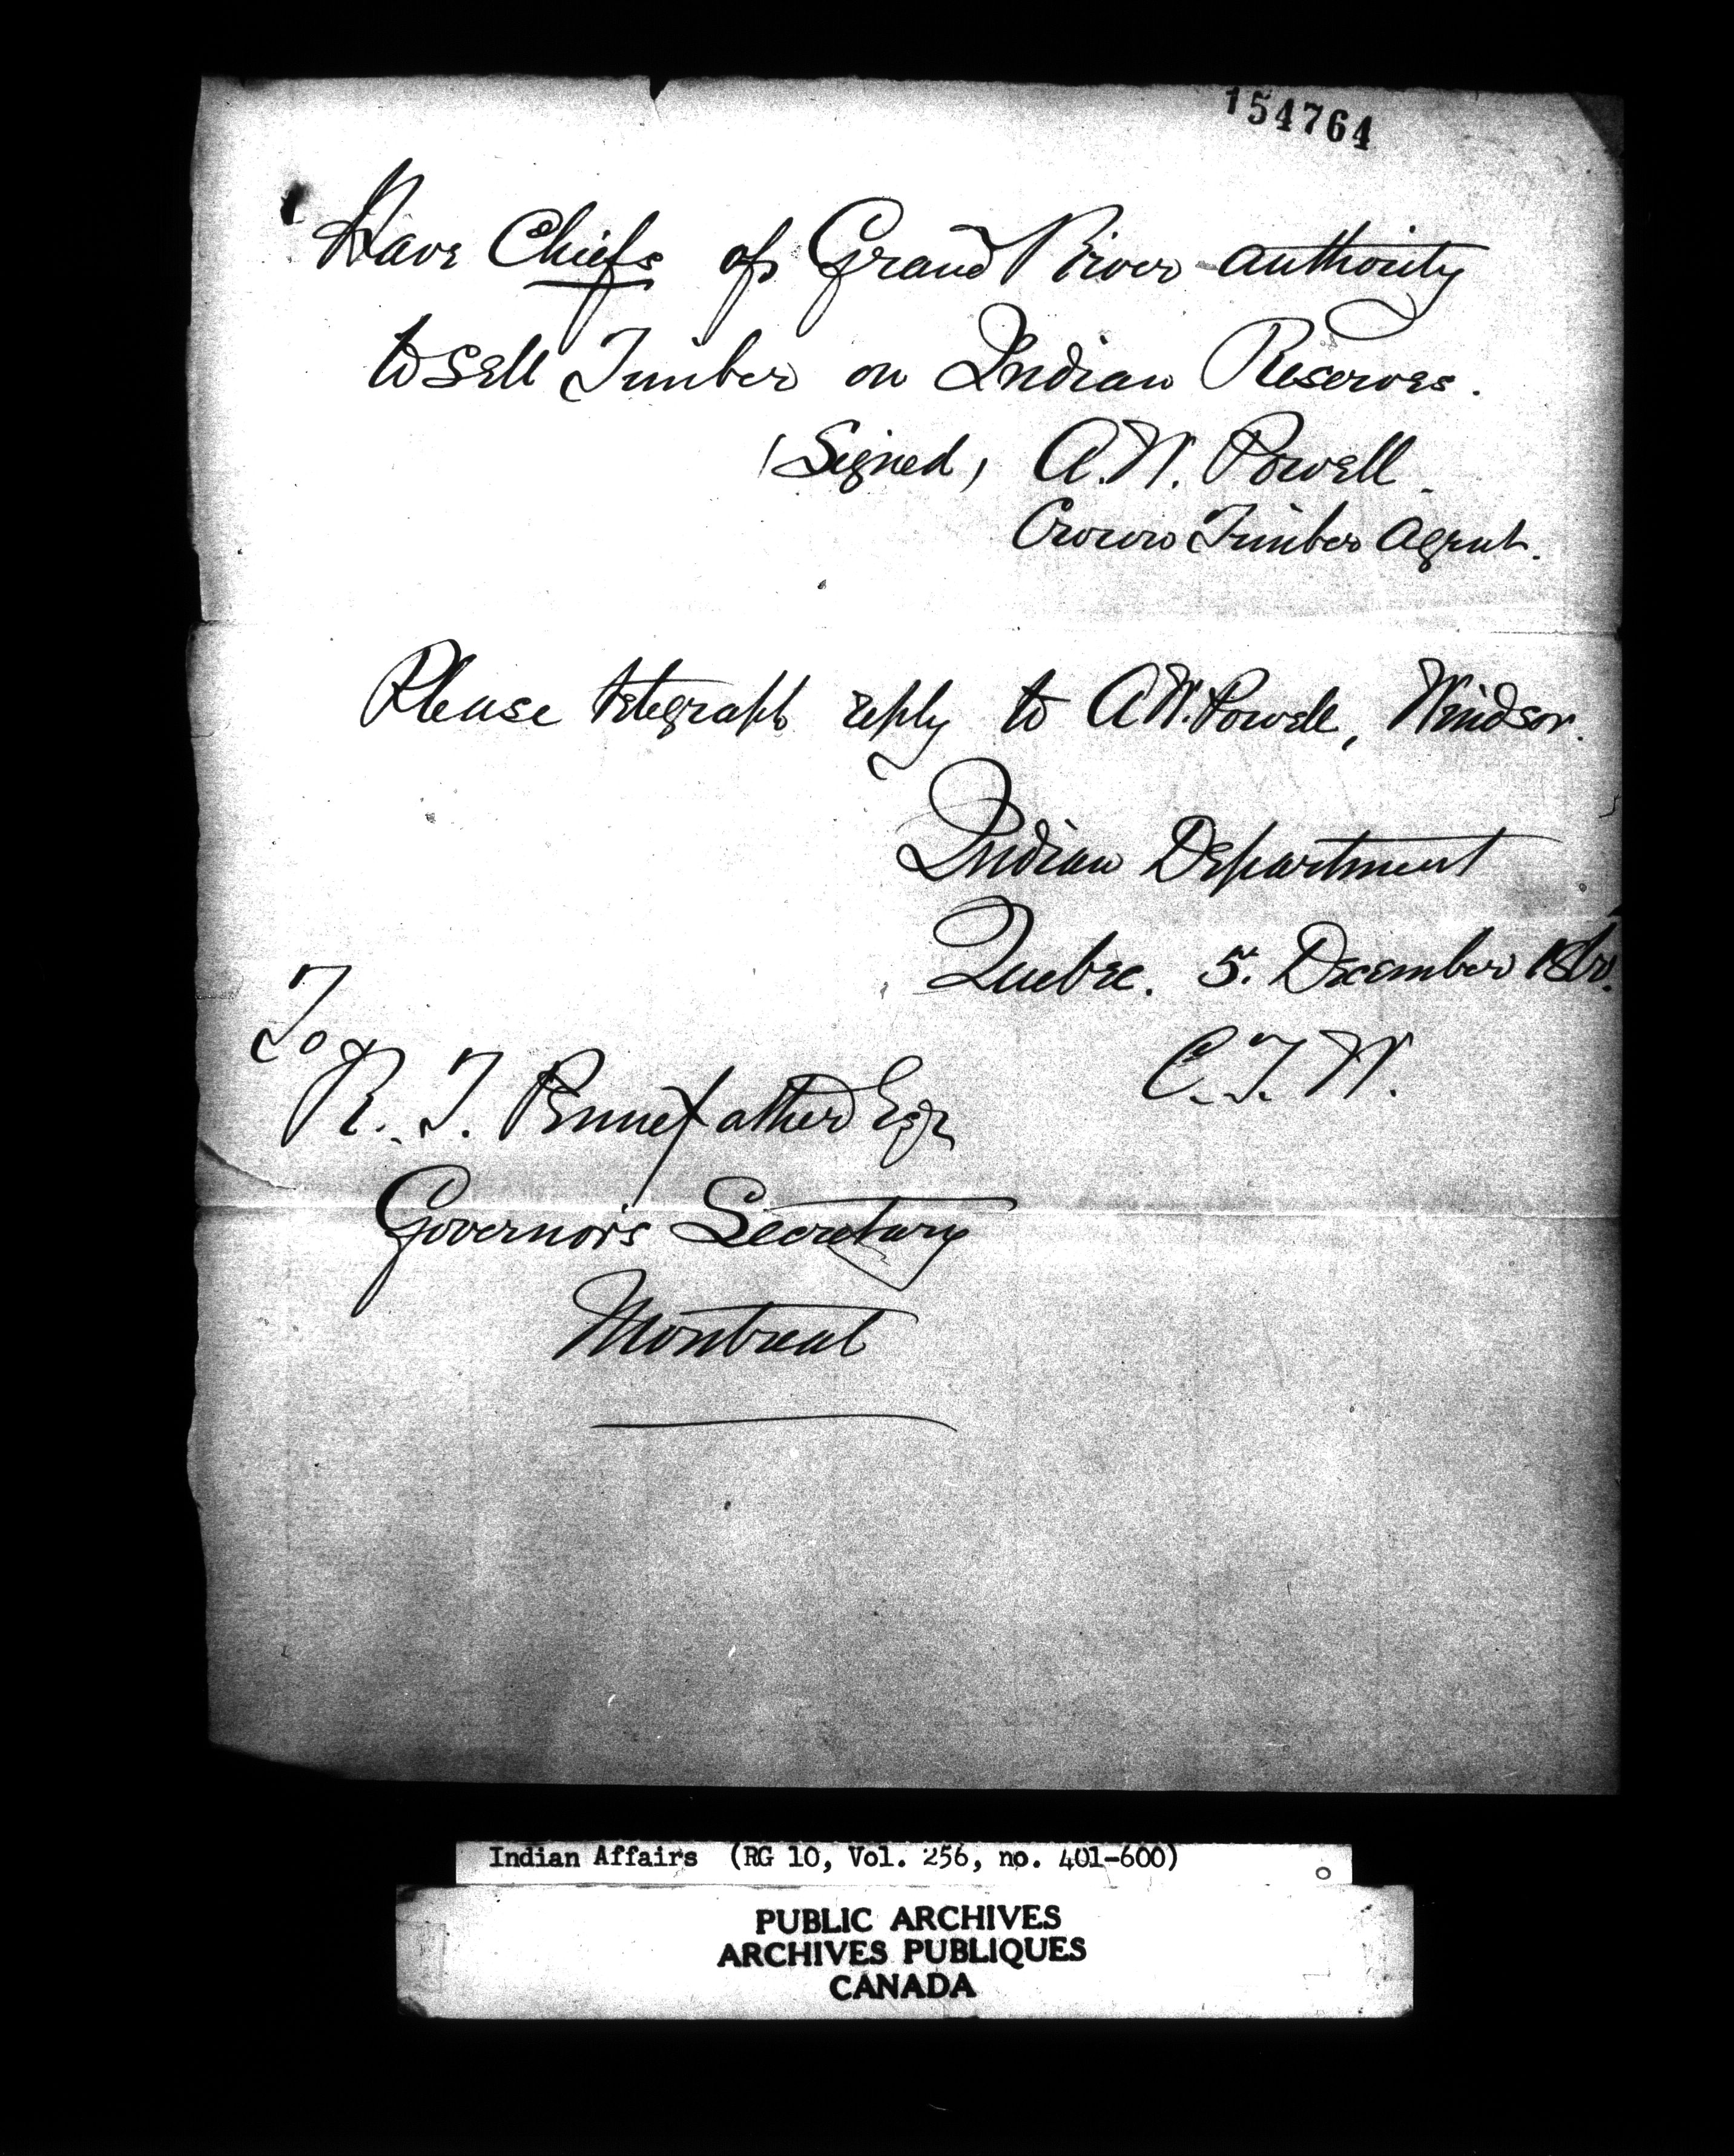 154764
Have Chiefs of Grand River authority
to sell Timber on Indian Reserves.
(Signed) A. W. Powell.
Crown Timber Agent.
Please telegraph reply to A W. Powell, Windsor.
Indian Department
Quebec. 5. December
C. T. W.
To
R. T. Pennefather Esqr
Governor's Secretary
Montreal
Indian Affairs (RG 10, Vol. 256, no. 401-600)
PUBLIC ARCHIVES
ARCHIVES PUBLIQUES
CANADA